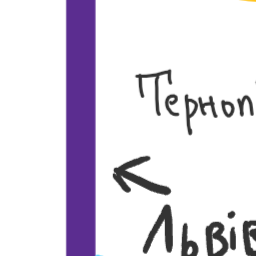 Терноп
Львів